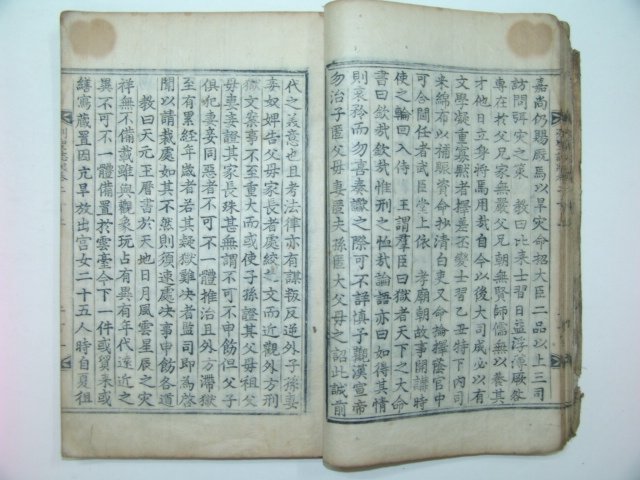 嘉尚仍賜廐馬以早灾命招大臣二品以上三司
訪問弭安之策　教曰比来士習日益浮薄厥咎
專在於父兄家無嚴父兄朝無賢師儒無以養其
才他日立身將焉用哉自今以後大司成必以有
文學凝重寡默者擇差丕變士習乙丑特下内司
米綿布以補賑資命抄清白吏又命掄擇蔭官中
可合閫任者武臣堂上依　孝廟朝故事開講時
使之輪回入侍　王謂羣臣曰獄者天下之大命
書曰欽哉欽哉惟刑之恤哉論語亦曰如得其情
則哀矜而勿喜奏讞之際可不詳愼子觀漢宣帝
勿治子匿父母妻匿夫孫匿大父母之詔此誠前
代之美意也且考法律亦有謀叛反逆外子孫妻
妾奴婢告父母家長者處絞之文而近觀外方刑
獄文案事不至重大而或使子孫證其父母祖父
母妻妾證其家長殊甚無謂不可不申飭但父子
俱犯妻妾同惡者不可不一體推治且外方滯獄
至有累經年歲者若其疑獄難决者監司即為啓
聞以請裁處如其不然則須速處决事申飭各道
　教曰天元王曆書於天地日月風雲星辰之灾
祥無不備載雖與觀象玩占有異有年代遠近之
異不可不一體備置於雲臺令下一件或貿来或
繕寫蔵置因亢旱放出宫女二十五人時自夏徂